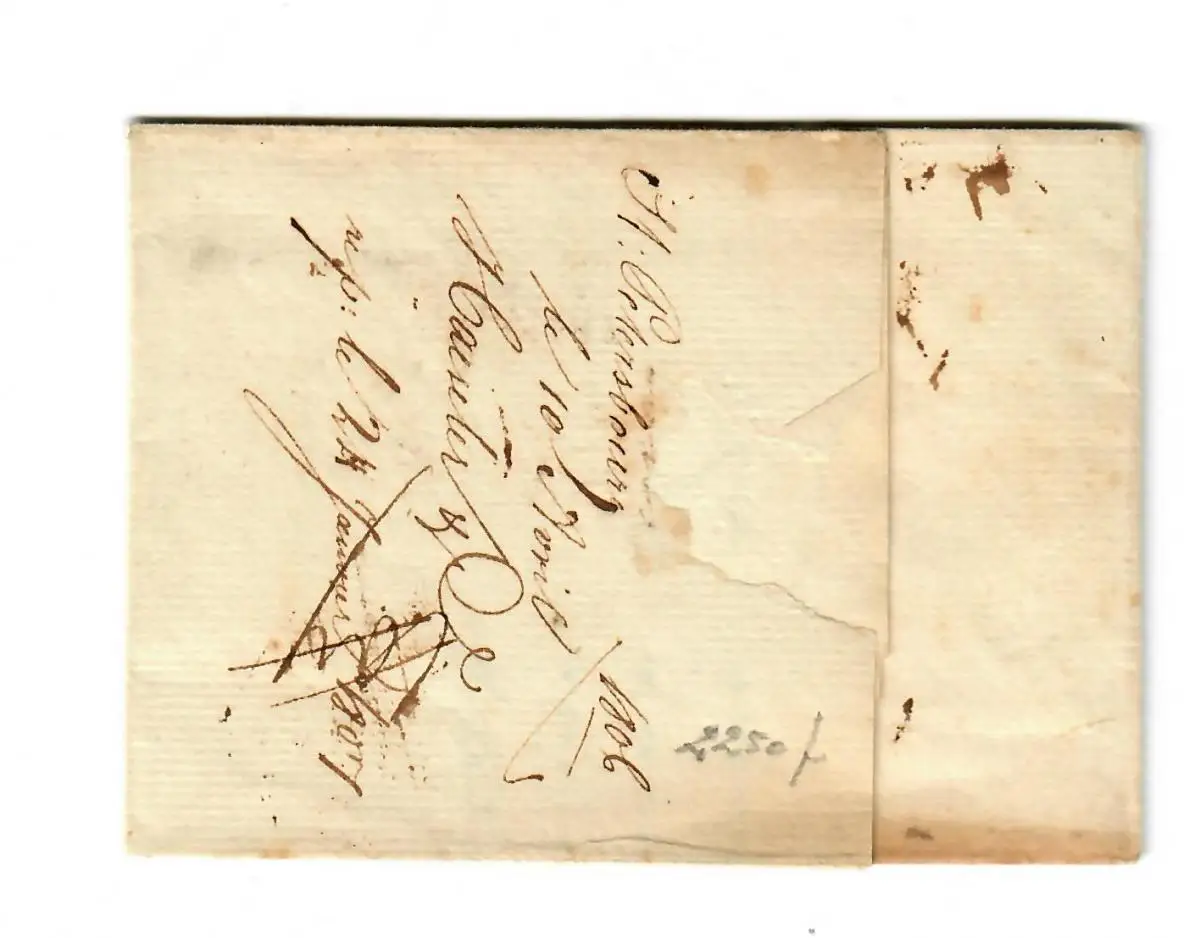 St. Petersbourg
le 10 Avril 1806
& Co
rep: le 24 Janvier 1807
2250 f